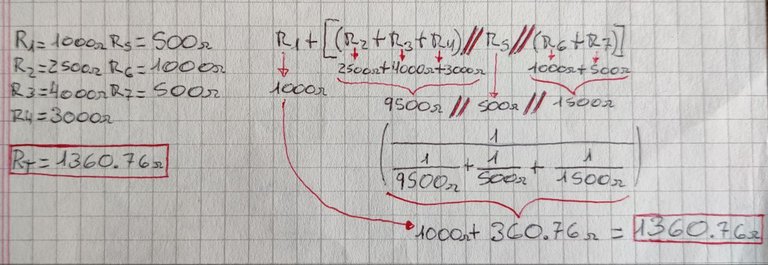 R1=1000Ω R5=500Ω
R2=2500Ω R6=1000Ω
R3=4000Ω R7=500Ω
R4=3000Ω
RT=1360.76Ω
R1+[(R2+R3+R4)//R5//(R6+R7)]
2500Ω+4000Ω+3000Ω 1000Ω+500Ω
1000Ω
9500Ω // 500Ω // 1500Ω
1
1 + 1 + 1
9500Ω 500Ω 1500Ω
1000Ω+360.76Ω = 1360.76Ω